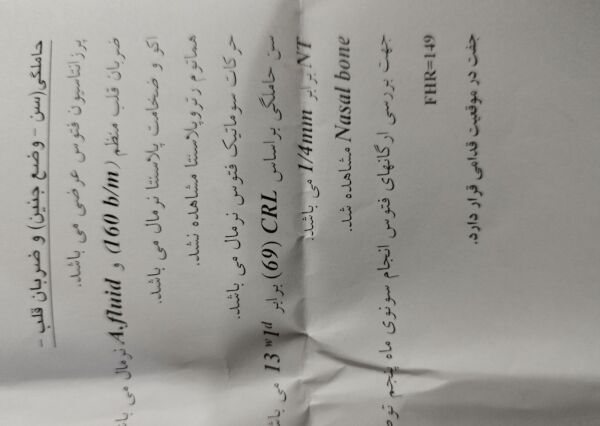 حاملگی(سن - وضع جنین) و ضربان قلب -
پرزانتاسیون فتوس عرضی می باشد.
ضربان قلب منظم (160 b/m) و A.fluid نرمال می باشد
اکو و ضخامت پلاسنتا نرمال می باشد.
هماتوم رتروپلاسنتا مشاهده نشد.
حرکات سوماتیک فتوس نرمال می باشد.
سن حاملگی براساس CRL (69) برابر 13w1d می باشد
NT برابر 1/4mm می باشد.
Nasal bone مشاهده شد.
جهت بررسی ارگانهای فتوس انجام سونوی ماه پنجم
FHR=149
جفت در موقعیت قدامی قرار دارد.